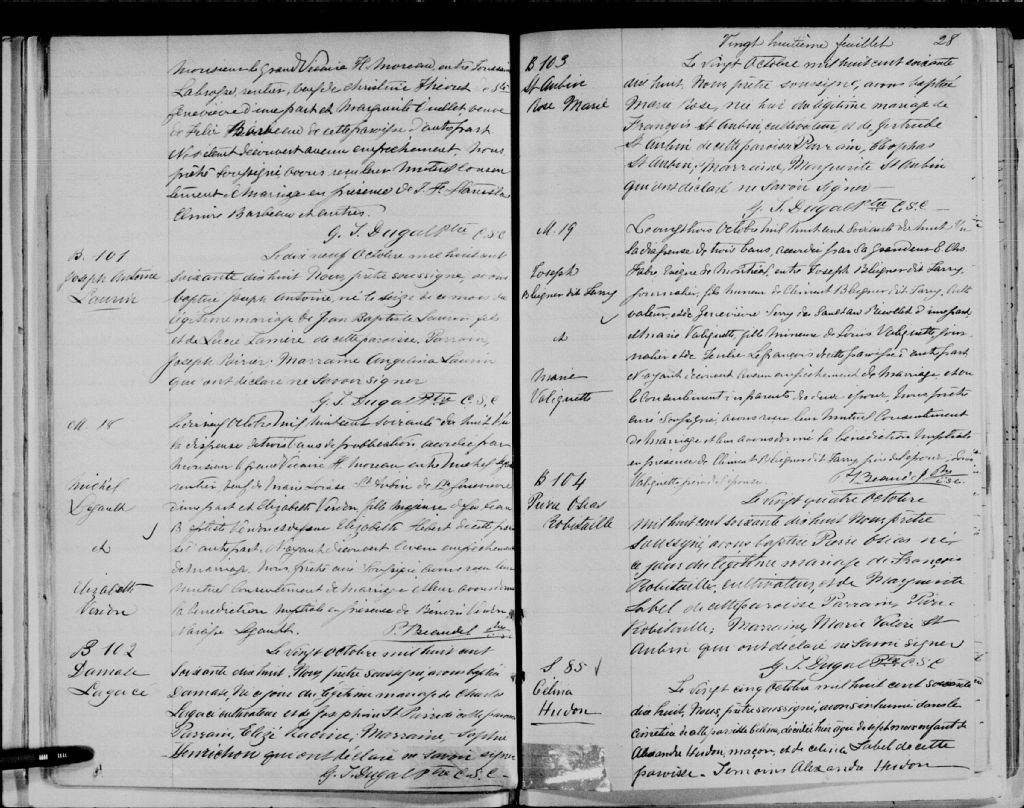 Monsieur le grand Vicaire H. Moreau, entre Toussaint
Labrosse, rentier, veuf de Christine Théoret de Ste
Geneviève d'une part et Marguerite Ouellet veuve
de Félix Barbeau de cette paroisse d'autre part
N'étant découvert aucun empêchement, Nous
prêtre soussigné avons reçu leur mutuel consen
tement de Mariage en présence de
Barbeau et autres.
G. T. Dugal Ptre C.S.C
B. 101
Joseph Antoine
Laurin
Le dix neuf Octobre mil huit cent
soixante dix huit Nous prêtre soussigné, avons
baptisé Joseph Antoine, né le seize de ce mois du
légitime mariage de Jean Baptiste Laurin
et de Lucie Lamère de cette paroisse. Parrain,
Joseph Marraine Angelina Laurin
qui ont déclaré ne savoir signer
G. T. Dugal Ptre C.S.C
M. 18
Michel
Legault
et
Elizabeth
Verdon
Octobre mil huit cent soixante dix huit Vu
la dispense de trois bans de publication accordée par
Monsieur le grand Vicaire H. Moreau entre Michel Legault
rentier, veuf de Marie Louise St Aubin de Ste Geneviève
d'une part et Elizabeth Verdon fille majeure de feu Jean
B ptiste Verdon et de feue Elizabeth Hébert de cette parois
se d'autre part. N'ayant découvert aucun empêchement
de mariage, Nous prêtre curé soussigné avons reçu leur
mutuel Consentement de mariage et leur avons donné
la bénédiction nuptiale en présence de Verdon
Legault.
P. Beaudet ptre
B 102
Damase
Lagacé
Le vingt octobre mil huit cent
soixante dix huit. Nous prêtre soussigné avons baptisé
Damase né ce jour du légitime mariage de Charles
Lagacé cultivateur et de Josephine St Pierre de cette paroisse
Parrain, Racine, Marraine, Sophie
qui ont déclaré ne savoir signer
G. T. Dugal Ptre C.S.C
Vingt huitième feuillet 28
B 103
St Aubin
Rose Marie
Le vingt Octobre mil huit cent soixante
dix huit. Nous prêtre soussigné, avons baptisé
Marie Rose, née hier du légitime mariage de
François St Aubin cultivateur et de Gertrude
St Aubin de cette paroisse Parrain, Cléophas
St Aubin; Marraine, Marguerite St Aubin
qui ont déclaré ne savoir signer
G. T. Dugal Ptre C.S.C
M. 19
Joseph
Bleigner dit Jarry
et
Marie
Valiquette
Le vingt Octobre mil huit cent soixante dix huit Vu
la dispense de trois bans, accordée par sa Grandeur E Chs
Fabre Evêque de Montréal, entre Joseph Bleignier dit Jarry
journalier, fils mineur de Clément Bleignier dit Jarry Culti
vateur et de Geneviève du Sault au Récollet d'une part
et Marie Valiquette fille mineure de Louis Valiquette jour
nalier et de Lefrançois de cette paroisse d'autre part
N'ayant découvert aucun empêchement de mariage et vu
le Consentement des parents des deux époux, Nous prêtre
curé soussigné, avons reçu leur mutuel Consentement
de mariage et leur avons donné la bénédiction nuptiale
en présence de Clément Bleignier dit Jarry père de l'époux, Louis
Valiquette, père de l'épouse.
P. Beaudet Ptre
C.S.C.
B 104
Pierre Osias
Robitaille
Le vingt quatre octobre
mil huit cent soixante dix huit Nous prêtre
soussigné avons baptisé Pierre Osias né
ce jour du légitime mariage de François
Robitaille, cultivateur, et de Marguerite
Label de cette paroisse Parrain, Pierre
Robitaille; Marraine, Marie Valérie St
Aubin qui ont déclaré ne savoir signer
G. T. Dugal Ptre C.S.C
S 85
Célina
Hudon
Le vingt cinq Octobre mil huit cent soixante
dix huit, Nous, prêtre soussigné, avons inhumé dans le
cimetière de cette paroisse Célina, décédée hier agée de sept mois enfant de
Alexandre Hudon, maçon, et de Célina Label de cette
paroisse. Témoins Alexandre Hudon